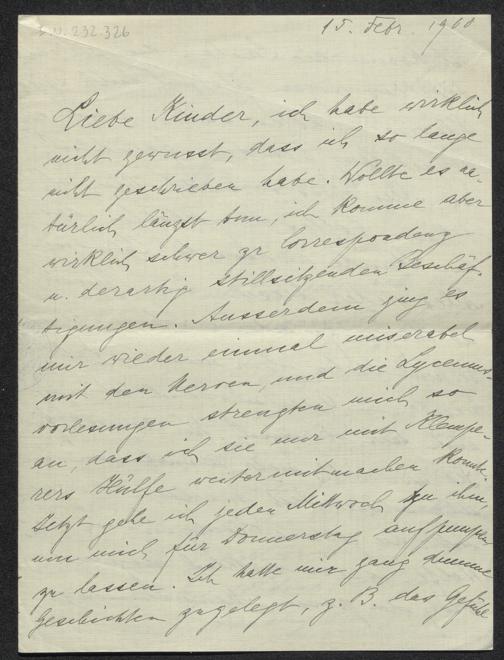 I.N. 232.326
15. Febr. 1900
Liebe Kinder, ich habe wirklich
nicht gewusst, dass ich so lange
nicht geschrieben habe. Wollte es na-
türlich längst tun, ich komme aber
wirklich schwer zr Correspondenz
u. derartig stillsitzenden Beschäf-
tigungen. Ausserdem ging es
mir wieder einmal miserabel
mit den Nerven, und die Lyceums-
vorlesungen strengten mich so
an, dass ich sie nur mit Klempe-
rers Hülfe weitermitmachen konnte.
Jetzt gehe ich jeden Mittwoch zu ihm,
um mich für Donnerstag aufpumpen
zr lassen. Ich hatte mir ganz dumme
Geschichten zugelegt, z. B. das Gefühl